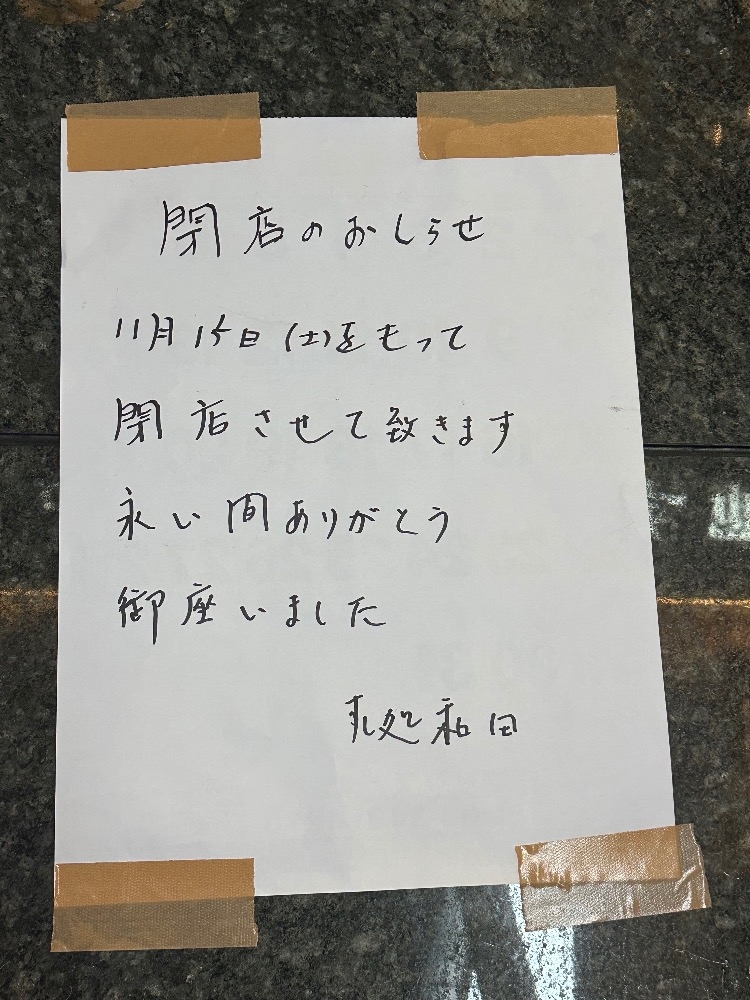 閉店のおしらせ
11月15日(土)をもって
閉店させて致きます
永い間ありがとう
御座いました
すし処和田